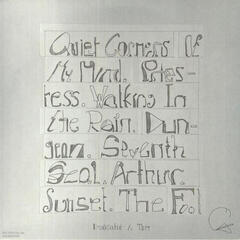 Quiet Corners Of
My Mind. Pries-
tress. Walking In
the Rain. Dun-
geon. Seventh
Seal. Arthur.
Sunset. The Fool